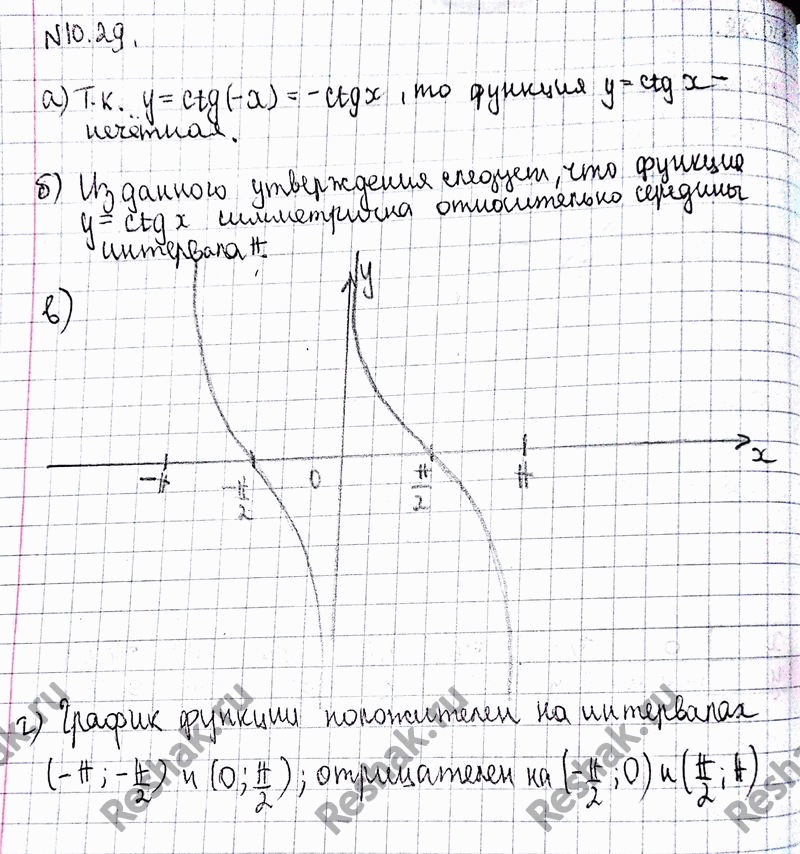 N10.29.
а) Т.к. y = ctg(-x) = -ctg x, то функция y = ctg x -
нечётная.
б) Из данного утверждения следует, что функция
y = ctg x симметрична относительно середины
интервала π.
в)
y
x
-π
-π/2
0
π/2
π
г) График функции положителен на интервалах
(-π; -π/2) и (0; π/2); отрицателен на (-π/2; 0) и (π/2; π)
Reshak.ru
Reshak.ru
Reshak.ru
Reshak.ru
Reshak.ru